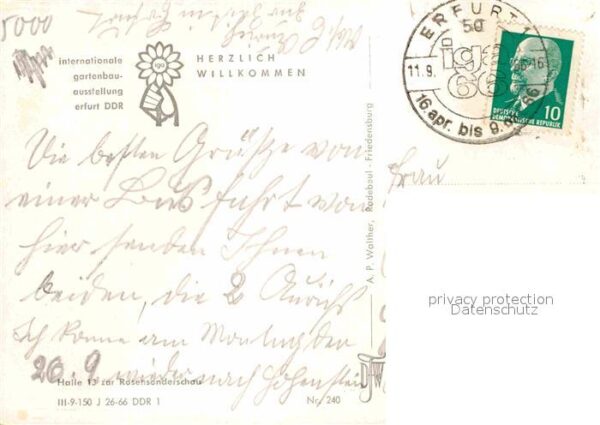 5000
internationale
gartenbau-
ausstellung
erfurt DDR
iga
HERZLICH
WILLKOMMEN
ERFURT
50
iga
66
11.9.
16 apr. bis 9.
DEUTSCHE
DEMOKRATISCHE REPUBLIK
10
Die besten Grüße von
einer Bus fahrt von
hier senden Ihnen
beiden, die 2
Ich komme am Montag den
26.9 wieder nach Hohenstein
Frau
A. P. Walther, Radebeul - Friedensburg
privacy protection
Datenschutz
Halle 13 zur Rosensonderschau
III-9-150 J 26-66 DDR 1
Nr. 240